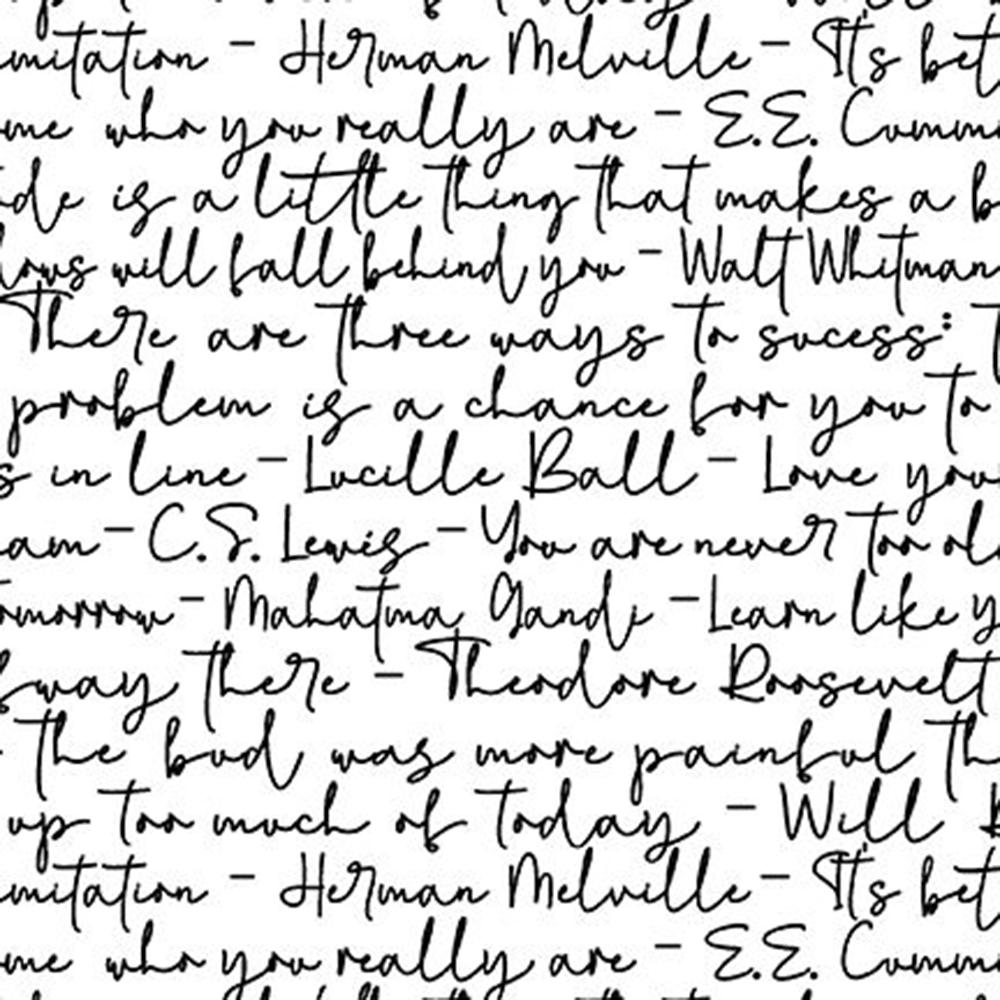 imitation - Herman Melville - It's bet
me who you really are - E.E. Cumm
de is a little thing that makes a b
lows will fall behind you - Walt Whitman
There are three ways to sucess: T
problem is a chance for you to
s in line - Lucille Ball - Love you
am - C.S. Lewis - You are never too ol
omorrow - Mahatma Gandi - Learn like y
fway there - Theodore Roosevelt
the bud was more painful th
up too much of today - Will
imitation - Herman Melville - It's bet
me who you really are - E.E. Cumm